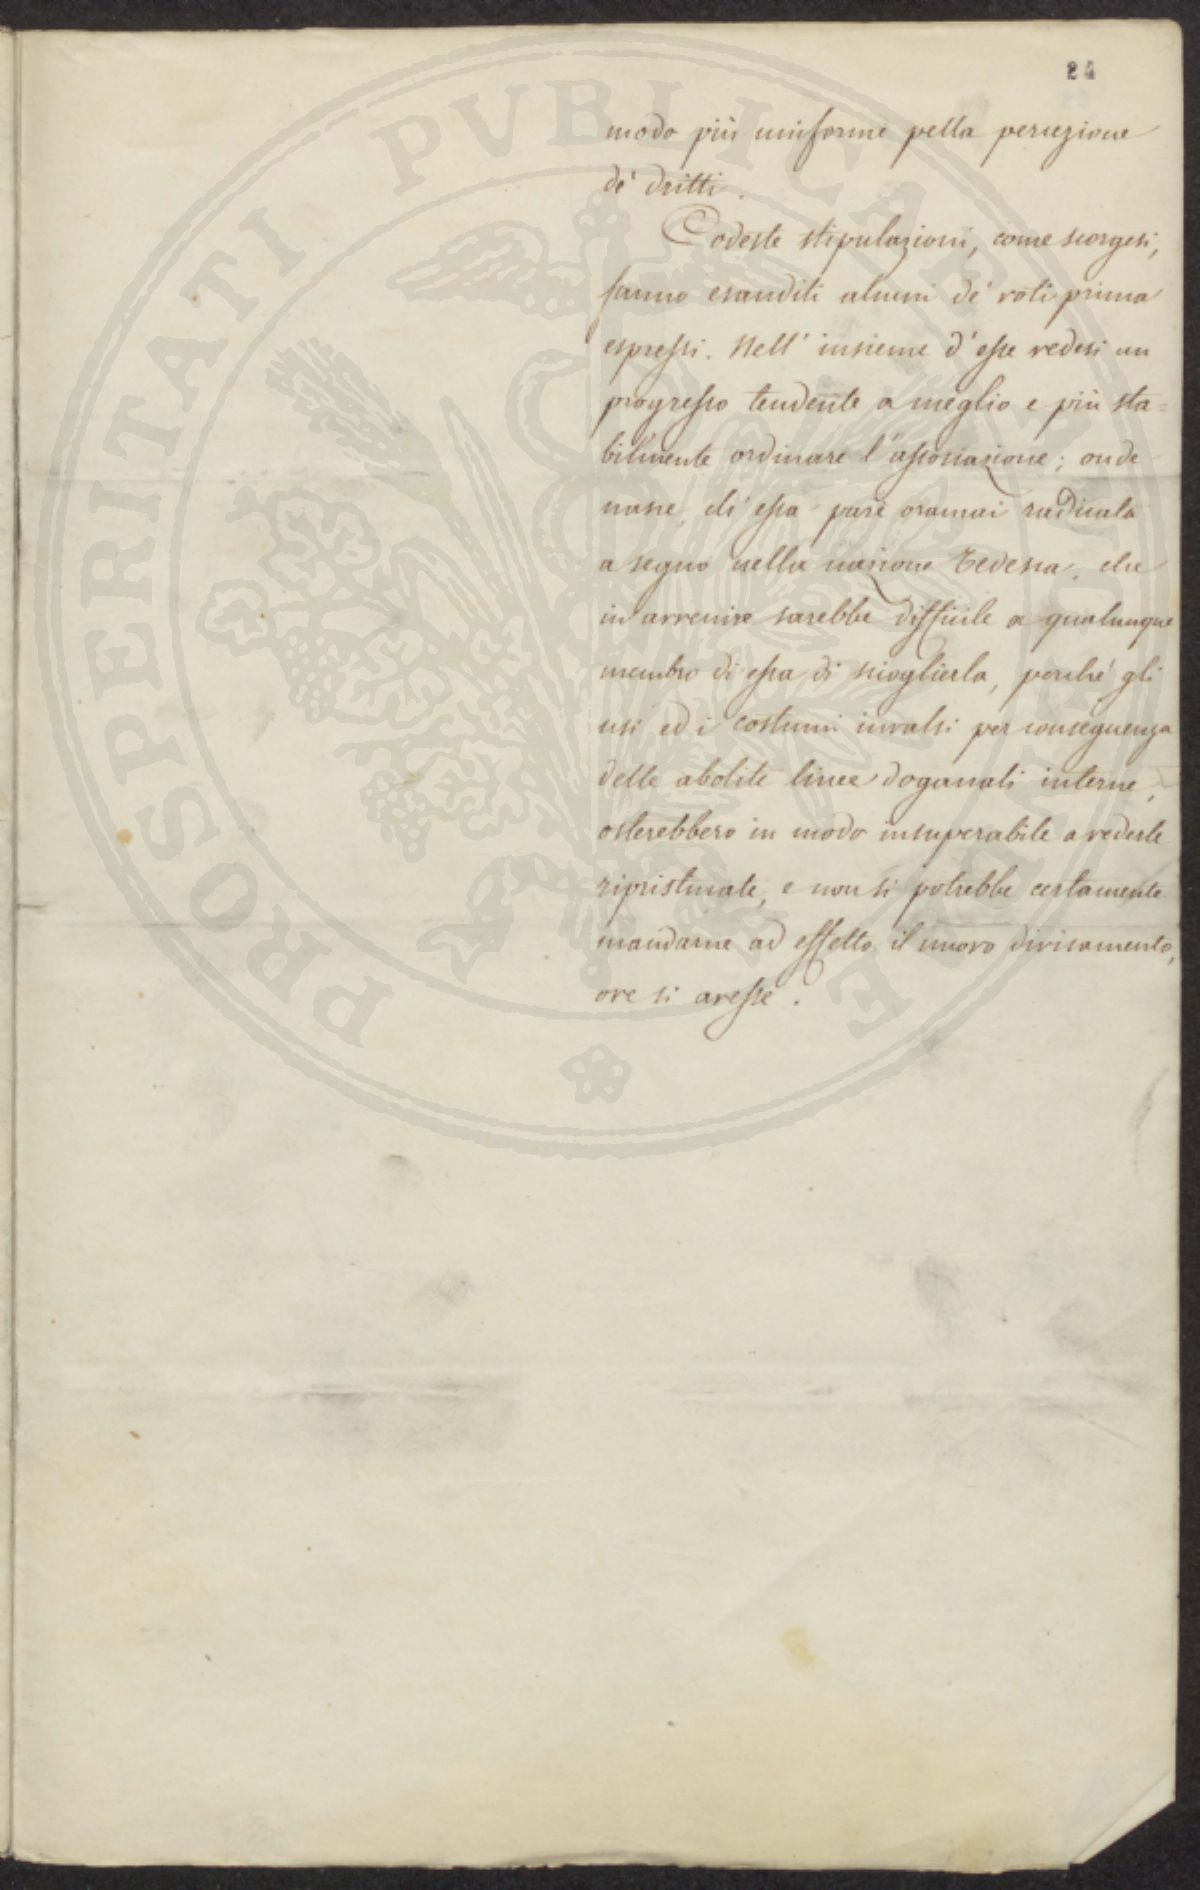 24
modo più uniforme pella percezione
de' dritti.
Codeste stipulazioni, come scorgesi,
fanno esauditi alcuni de' voti prima
espressi. Nell' insieme d'esse vedesi un
progresso tendente a meglio e più sta=
bilmente ordinare l'associazione; onde
nasce, ch' essa pare oramai radicata
a segno nella nazione Tedesca, che
in avvenire sarebbe difficile a qualunque
membro di essa di scioglierla, perchè gli
usi ed i costumi invalsi per conseguenza
delle abolite linee doganali interne,
osterebbero in modo insuperabile a vederle
ripristinate, e non si potrebbe certamente
mandarne ad effetto il nuovo divisamento,
ove si avesse.
PROSPERITATI PVBLICAE